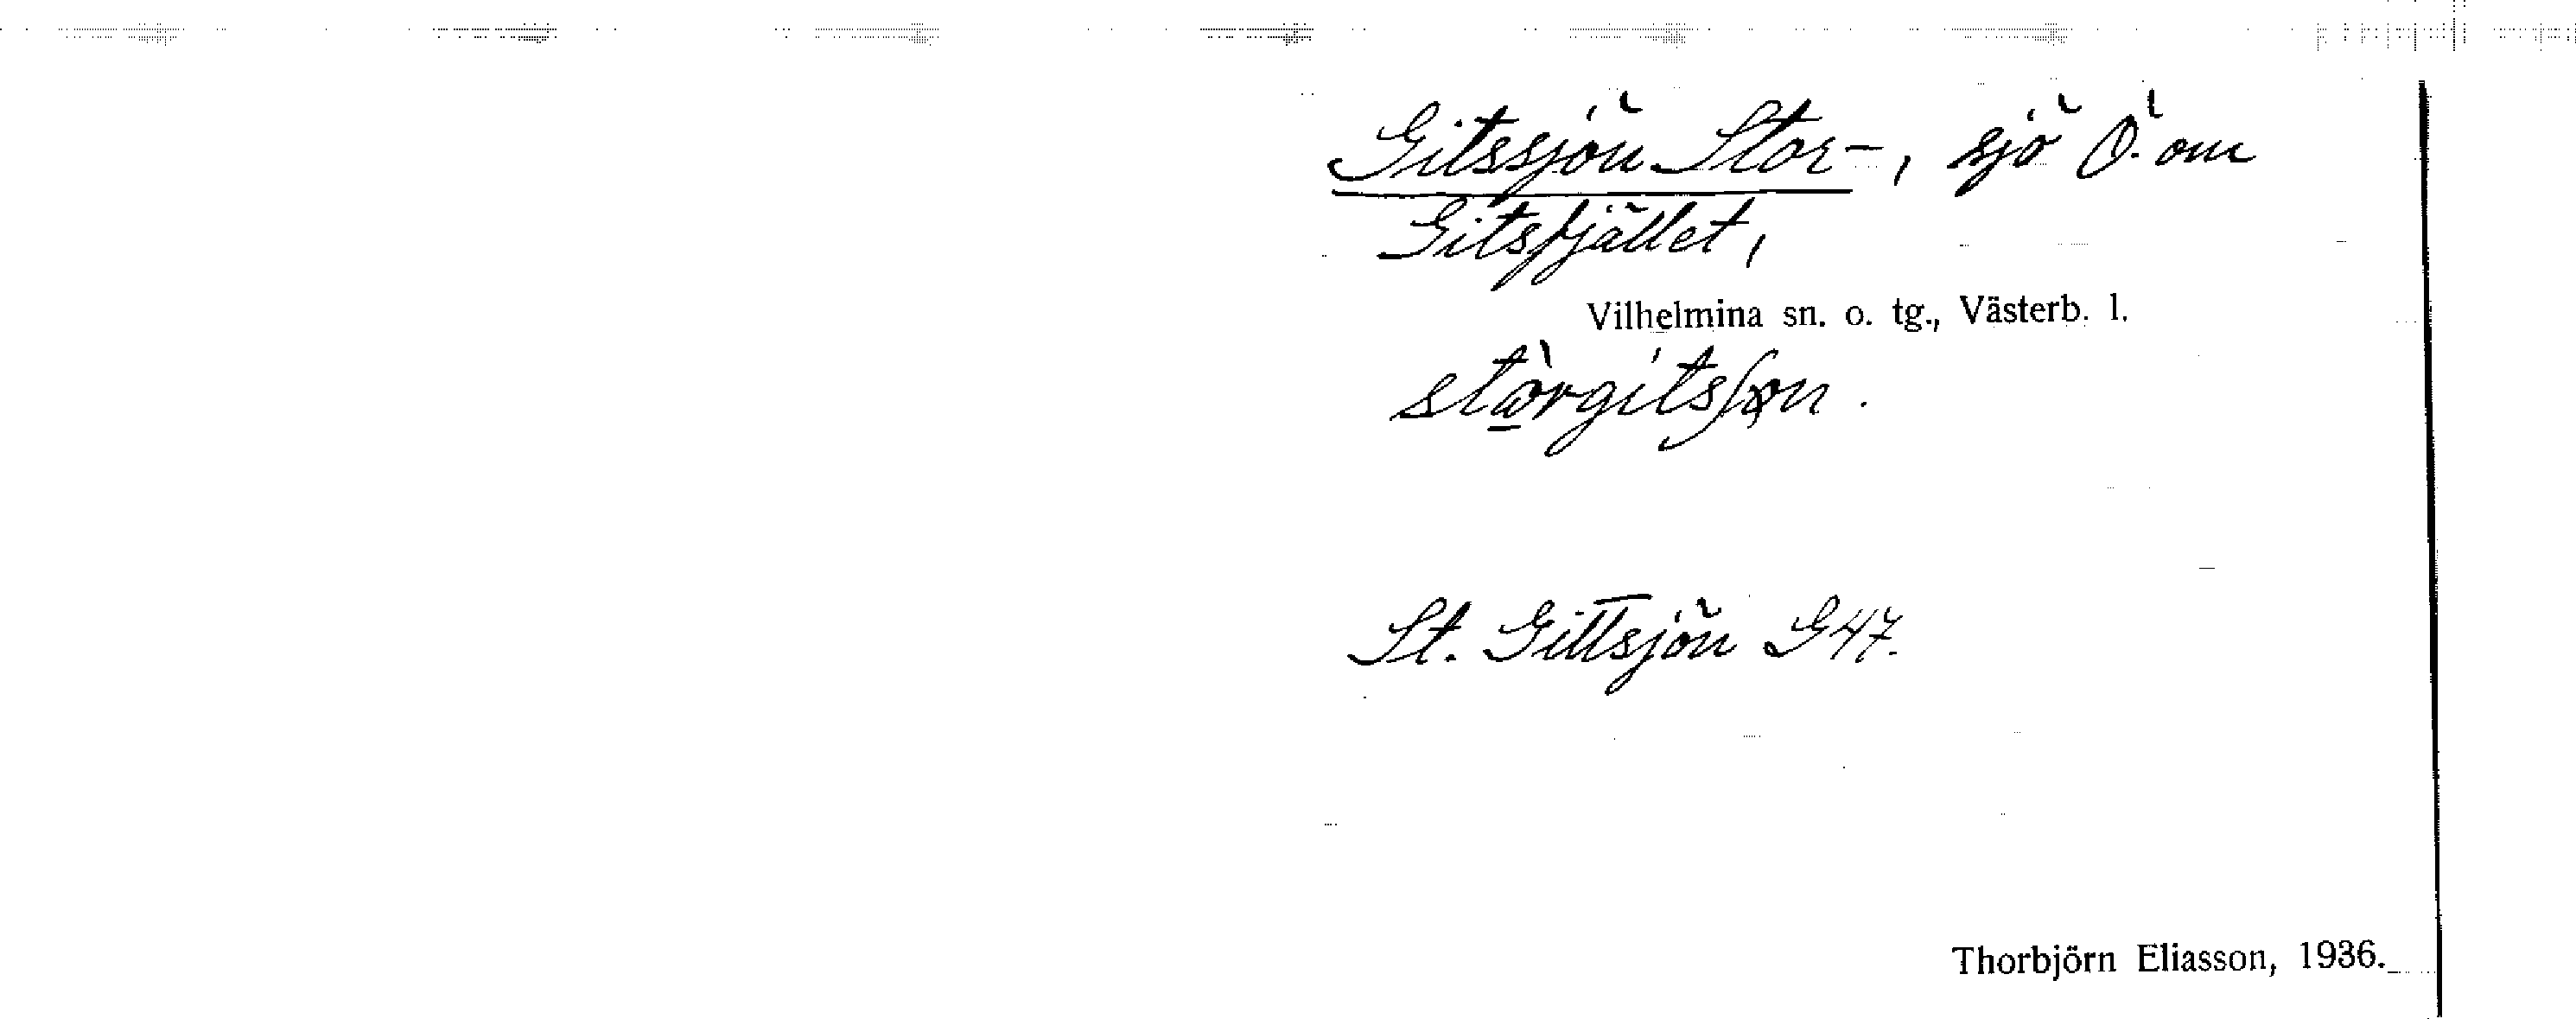 Gitssjön Stor-, sjö Ö. om
Gitsfjället,
Vilhelmina sn. o. tg., Västerb. l.
St. Gittsjön G47.
Thorbjörn Eliasson, 1936.